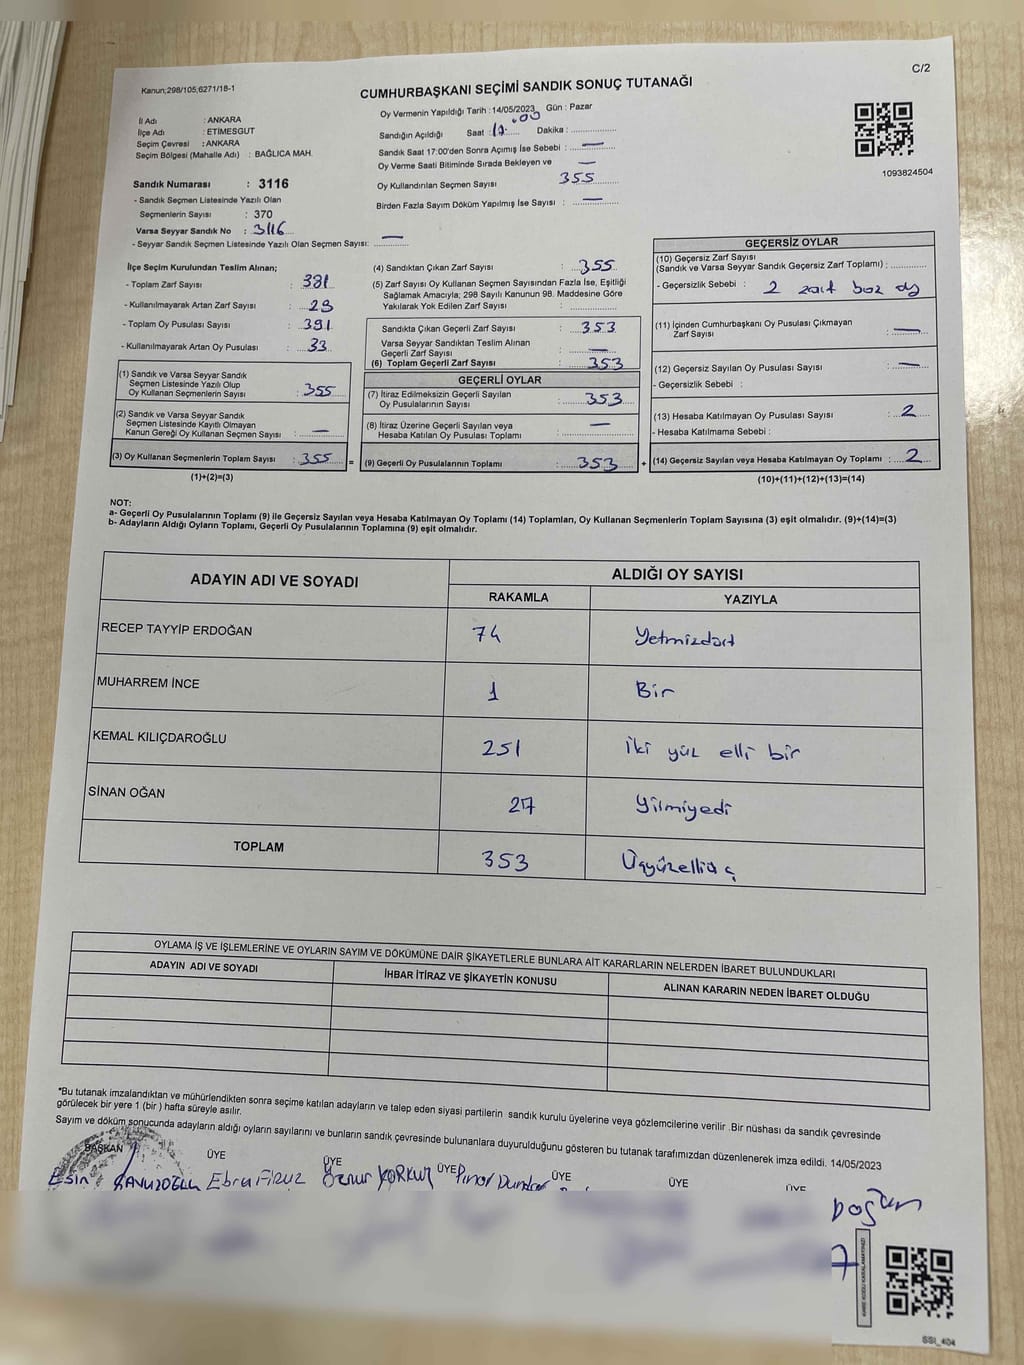 C/2
Kanun;298/105,6271/18-1
CUMHURBAŞKANI SEÇİMİ SANDIK SONUÇ TUTANAĞI
İl Adı : ANKARA
İlçe Adı : ETİMESGUT
Seçim Çevresi : ANKARA
Seçim Bölgesi (Mahalle Adı) : BAĞLICA MAH.
Sandık Numarası : 3116
- Sandık Seçmen Listesinde Yazılı Olan
Seçmenlerin Sayısı : 370
Varsa Seyyar Sandık No : 3116
- Seyyar Sandık Seçmen Listesinde Yazılı Olan Seçmen Sayısı: —
Oy Vermenin Yapıldığı Tarih : 14/05/2023 Gün : Pazar
Sandığın Açıldığı Saat : Dakika :
Sandık Saat 17:00'den Sonra Açımış İse Sebebi : —
Oy Verme Saati Bitiminde Sırada Bekleyen ve —
Oy Kullandırılan Seçmen Sayısı 355
Birden Fazla Sayım Döküm Yapılmış İse Sayısı : —
1093824504
İlçe Seçim Kurulundan Teslim Alınan;
- Toplam Zarf Sayısı : 381
- Kullanılmayarak Artan Zarf Sayısı :
- Toplam Oy Pusulası Sayısı : 391
- Kullanılmayarak Artan Oy Pusulası : 33
(1) Sandık ve Varsa Seyyar Sandık
Seçmen Listesinde Yazılı Olup
Oy Kullanan Seçmenlerin Sayısı : 355
(2) Sandık ve Varsa Seyyar Sandık
Seçmen Listesinde Kayıtlı Olmayan
Kanun Gereği Oy Kullanan Seçmen Sayısı : —
(3) Oy Kullanan Seçmenlerin Toplam Sayısı : 355 =
(1)+(2)=(3)
(4) Sandıktan Çıkan Zarf Sayısı : 355
(5) Zarf Sayısı Oy Kullanan Seçmen Sayısından Fazla İse, Eşitliği
Sağlamak Amacıyla; 298 Sayılı Kanunun 98. Maddesine Göre
Yakılarak Yok Edilen Zarf Sayısı :
Sandıkta Çıkan Geçerli Zarf Sayısı : 353
Varsa Seyyar Sandıktan Teslim Alınan
Geçerli Zarf Sayısı : —
(6) Toplam Geçerli Zarf Sayısı : 353
GEÇERLİ OYLAR
(7) İtiraz Edilmeksizin Geçerli Sayılan
Oy Pusulalarının Sayısı : 353
(8) İtiraz Üzerine Geçerli Sayılan veya
Hesaba Katılan Oy Pusulası Toplamı : —
(9) Geçerli Oy Pusulalarının Toplamı : 353 +
GEÇERSİZ OYLAR
(10) Geçersiz Zarf Sayısı
(Sandık ve Varsa Seyyar Sandık Geçersiz Zarf Toplamı) :
- Geçersizlik Sebebi : 2 zarf boz oy
(11) İçinden Cumhurbaşkanı Oy Pusulası Çıkmayan
Zarf Sayısı : —
(12) Geçersiz Sayılan Oy Pusulası Sayısı : —
- Geçersizlik Sebebi :
(13) Hesaba Katılmayan Oy Pusulası Sayısı : 2
- Hesaba Katılmama Sebebi :
(14) Geçersiz Sayılan veya Hesaba Katılmayan Oy Toplamı : 2
(10)+(11)+(12)+(13)=(14)
NOT:
a- Geçerli Oy Pusulalarının Toplamı (9) ile Geçersiz Sayılan veya Hesaba Katılmayan Oy Toplamı (14) Toplamları, Oy Kullanan Seçmenlerin Toplam Sayısına (3) eşit olmalıdır. (9)+(14)=(3)
b- Adayların Aldığı Oyların Toplamı, Geçerli Oy Pusulalarının Toplamına (9) eşit olmalıdır.
ADAYIN ADI VE SOYADI ALDIĞI OY SAYISI
RAKAMLA YAZIYLA
RECEP TAYYİP ERDOĞAN 74 Yetmizdört
MUHARREM İNCE 1 Bir
KEMAL KILIÇDAROĞLU 251 iki yüz elli bir
SİNAN OĞAN 27 Yilmiyedi
TOPLAM 353 Üçyüzelliüç
OYLAMA İŞ VE İŞLEMLERİNE VE OYLARIN SAYIM VE DÖKÜMÜNE DAİR ŞİKAYETLERLE BUNLARA AİT KARARLARIN NELERDEN İBARET BULUNDUKLARI
ADAYIN ADI VE SOYADI İHBAR İTİRAZ VE ŞİKAYETİN KONUSU ALINAN KARARIN NEDEN İBARET OLDUĞU
*Bu tutanak imzalandıktan ve mühürlendikten sonra seçime katılan adayların ve talep eden siyasi partilerin sandık kurulu üyelerine veya gözlemcilerine verilir .Bir nüshası da sandık çevresinde
görülecek bir yere 1 (bir ) hafta süreyle asılır.
Sayım ve döküm sonucunda adayların aldığı oyların sayılarını ve bunların sandık çevresinde bulunanlara duyurulduğunu gösteren bu tutanak tarafımızdan düzenlenerek imza edildi. 14/05/2023
BAŞKAN ÜYE ÜYE ÜYE ÜYE ÜYE ÜYE
Esin Ebru Firuz Öznur KORKUR Pınar Dundar
Doğan
SSI_404